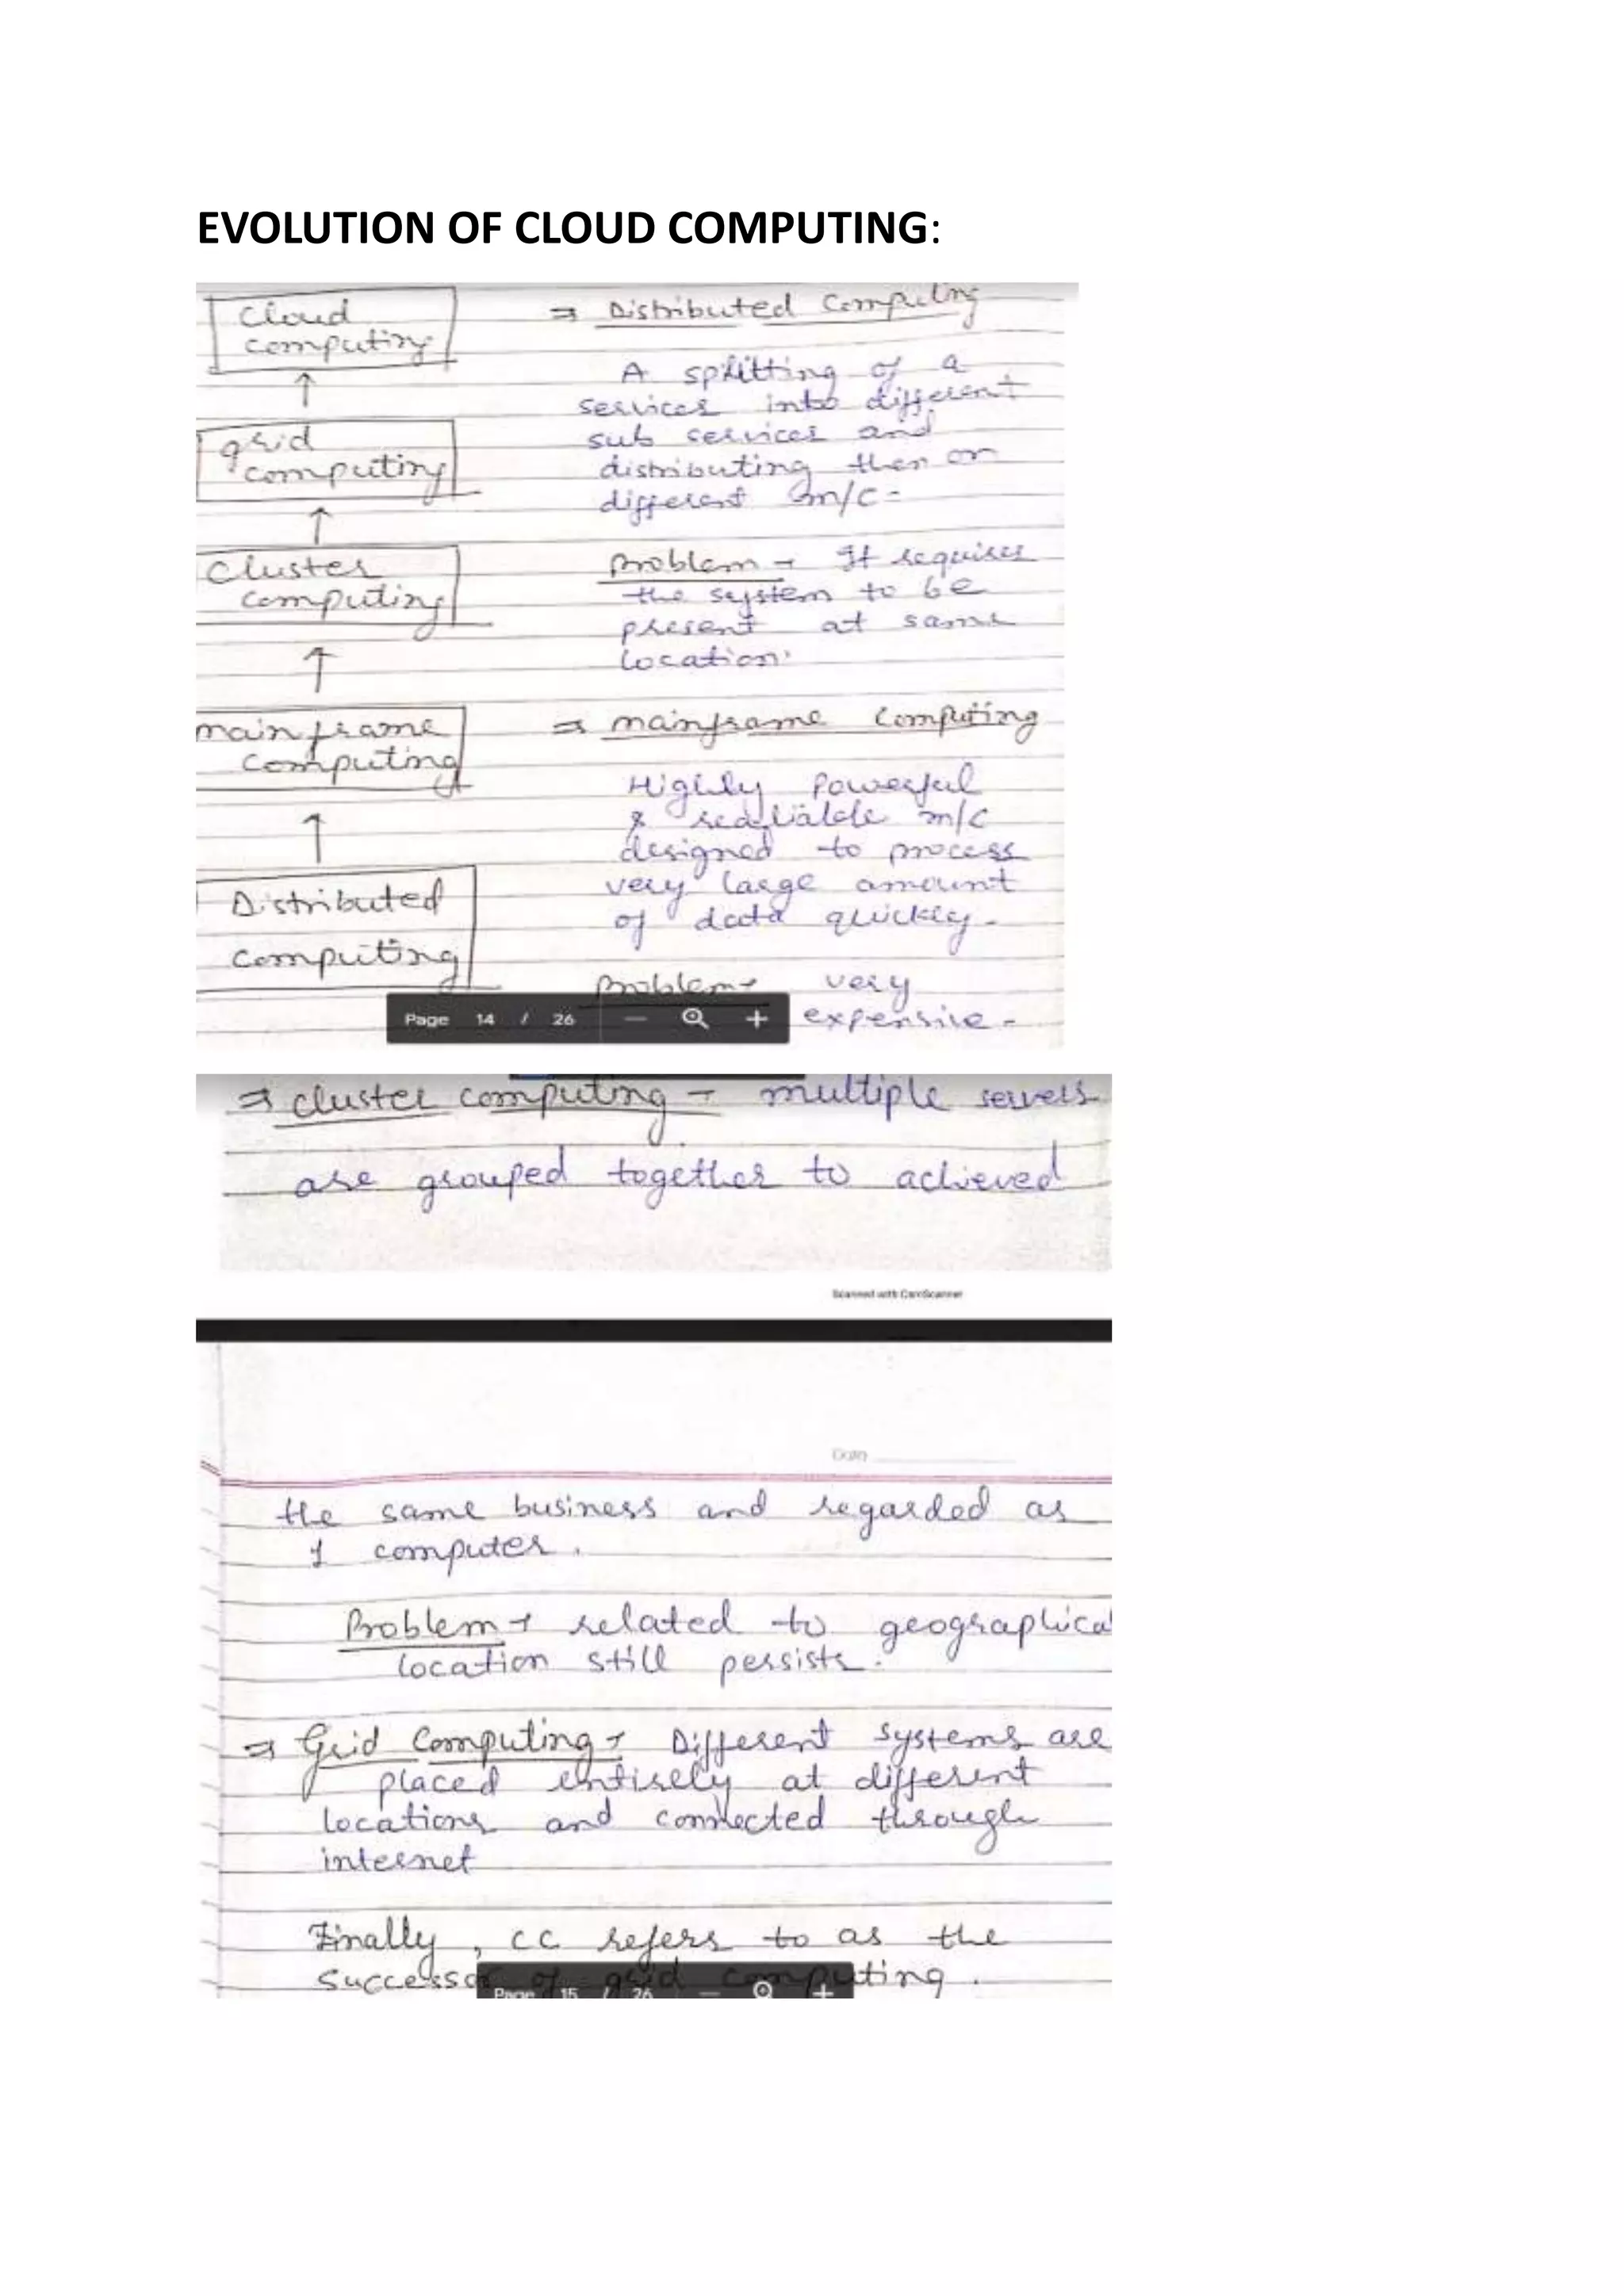 EVOLUTION OF CLOUD COMPUTING:
Cloud
computing
↑
grid
computing
↑
Cluster
computing
↑
mainframe
computing
↑
Distributed
computing
⇒ Distributed Computing
A splitting of a
services into different
sub services and
distributing then on
different m/c -
Problem → It requires
the system to be
present at same
location.
⇒ mainframe Computing
Highly Powerful
& realiable m/c
designed to process
very large amount
of data quickly -
Problem → very
expensive -
Page 14 / 26 — +
⇒ cluster computing → multiple servers
are grouped together to achieved
Scanned with CamScanner
Date
the same business and regarded as
1 computer.
Problem → related to geographical
location still persists.
⇒ Grid Computing → Different systems are
placed entirely at different
locations and connected through
internet
Finally, CC refers to as the
successor of grid computing.
Page 15 / 26 — +